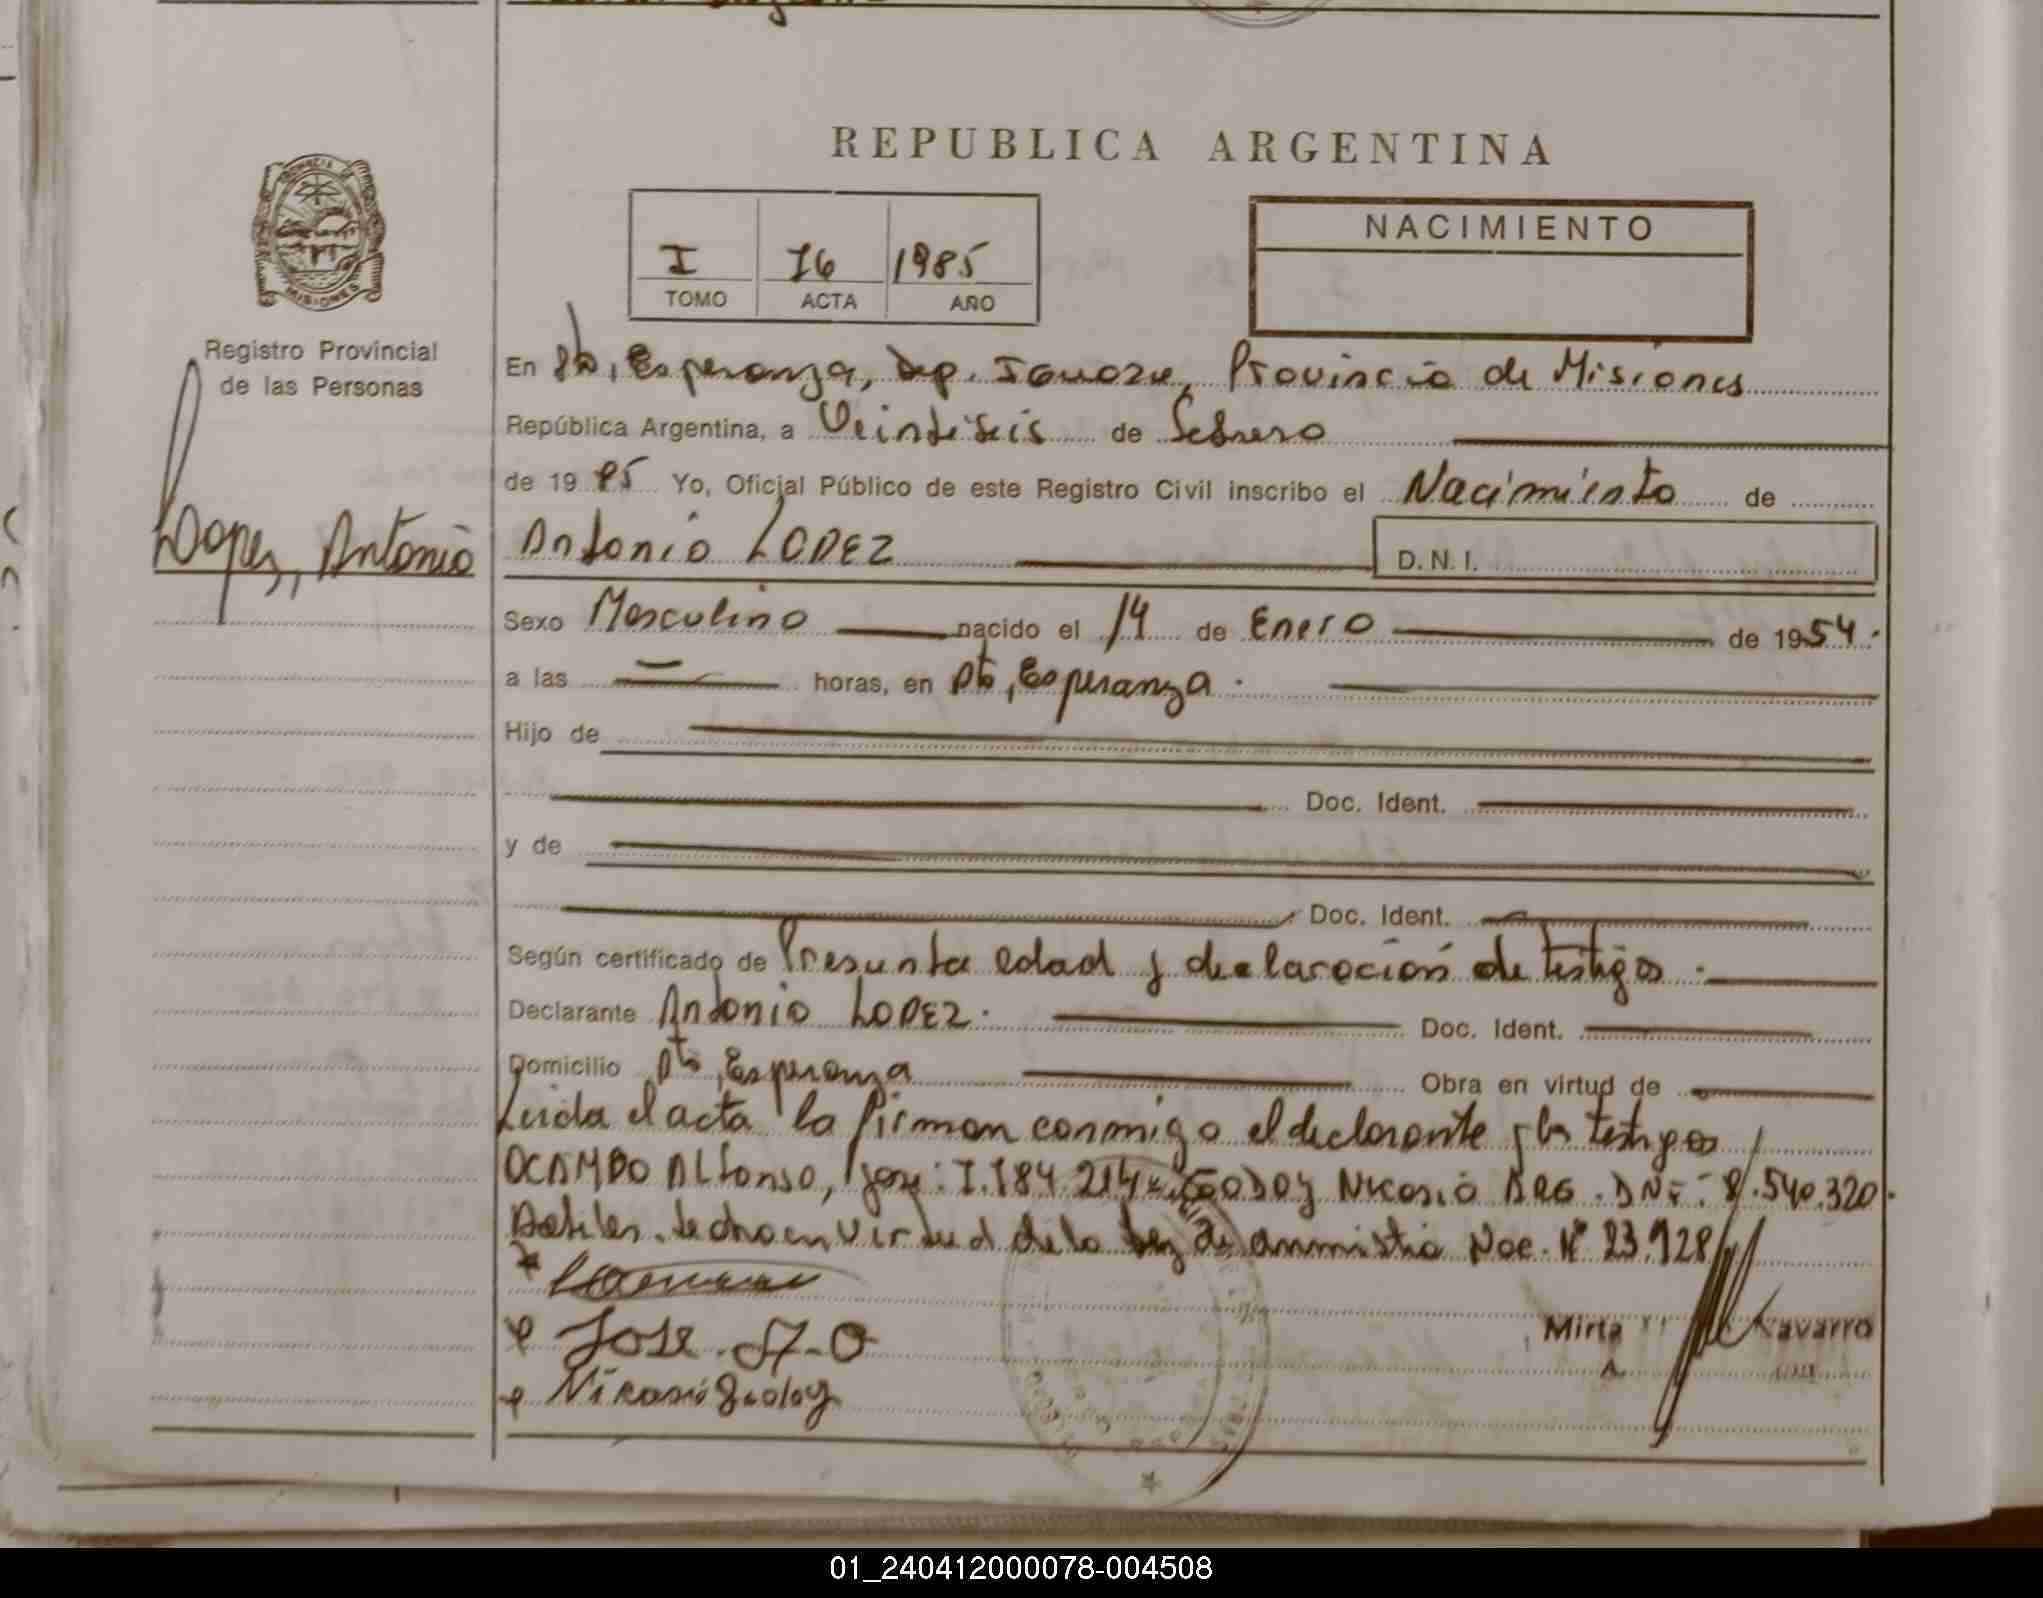 REPUBLICA ARGENTINA
I 76 1985
TOMO ACTA AÑO
NACIMIENTO
Registro Provincial
de las Personas
Lopez, Antonio
En Pto, Esperanza, Dep. Iguazu, Provincia de Misiones
República Argentina, a Veintiseis de Febrero
de 1985 Yo, Oficial Público de este Registro Civil inscribo el Nacimiento de
Antonio LOPEZ D.N.I.
Sexo Masculino nacido el 14 de Enero de 1954.
a las horas, en Pto, Esperanza.
Hijo de
Doc. Ident.
y de
Doc. Ident.
Según certificado de Presunta edad y declaración de testigos.
Declarante Antonio LOPEZ. Doc. Ident.
Domicilio Pto, Esperanza Obra en virtud de
Leida el acta la firman conmigo el declarante y los testigos
OCAMPO Alfonso, José: 7.184.214 GODOY Nicasio ARG. DNI: 8.540.320.
en virtud de la ley de ammistia Nac. Nº 23.128
Jose. A-O
Nikasio Godoy
Mirta Navarro
01_240412000078-004508